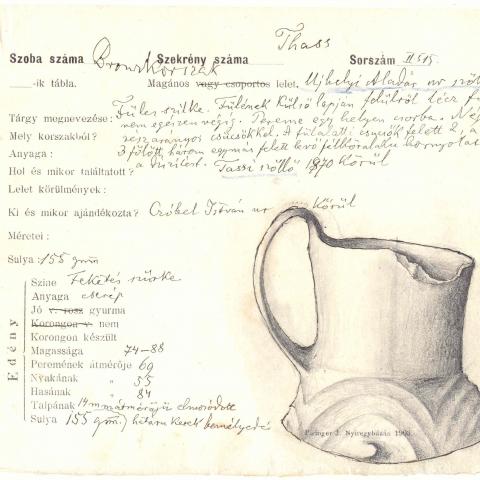 Thass
Szoba száma Bronzkorszak Szekrény száma Sorszám II 515
-ik tábla. Magános vagy csoportos lelet, Ujhelyi Aladár ur
Tárgy megnevezése: Füles szilke. Fülének külső lapján felülről lécz
nem egészen végig. Pereme egy helyen csorba.
Mely korszakból? csúcsokkal. A fülalatti csucsok felett 2, a
Anyaga: 3 fölött, három egymás felett levő félköralaku
a diszités.
Hol és mikor találtatott? Tassi szőllő 1870 körül
Lelet körülmények:
Ki és mikor ajándékozta? Czóbel István ur körül
Méretei:
Sulya: 155 gm
Edény
Szine Feketés szürke
Anyaga cserép
Jó v. rosz gyurma
Korongon v. nem
Korongon készült
Magassága 74-88
Peremének átmérője 69
Nyakának " 55
Hasának " 84
Talpának 14 mm átmérőjű elmosódott
Sulya 155 grm.) hátán kerek bemélyedés
Piringer J. Nyiregyházán